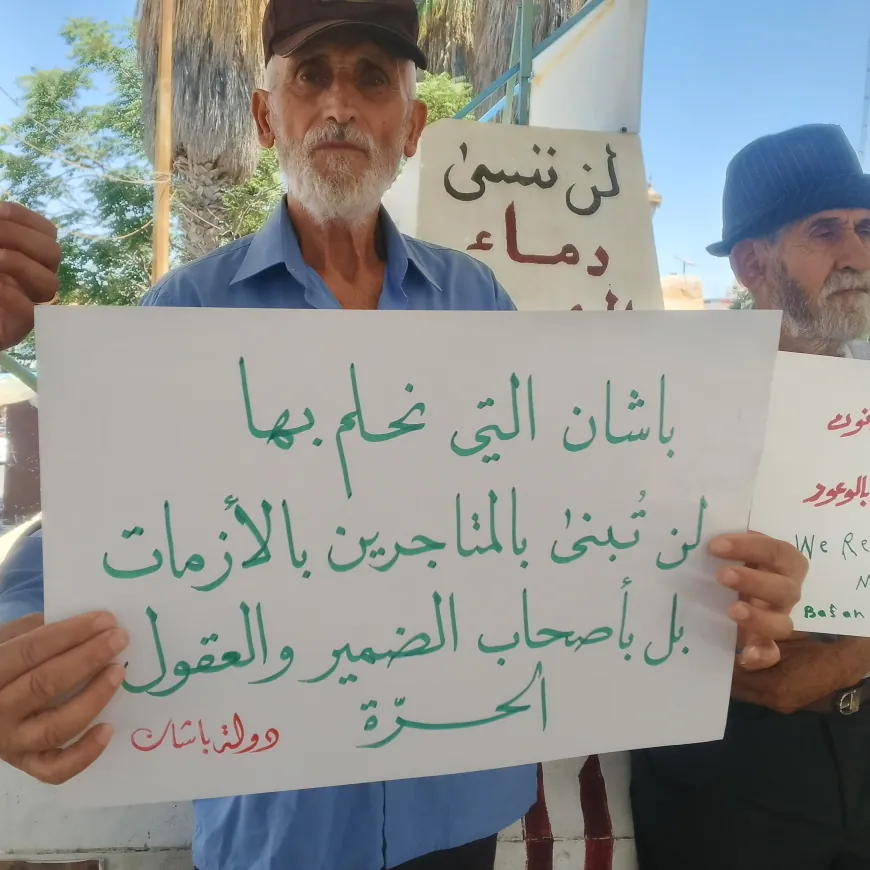 لن ننسى
دماء
باشان التي نحلم بها
لن تُبنى بالمتاجرين بالأزمات
بل بأصحاب الضمير والعقول
الحرّة
دولة باشان
بالوعود
We Re
N
Basan